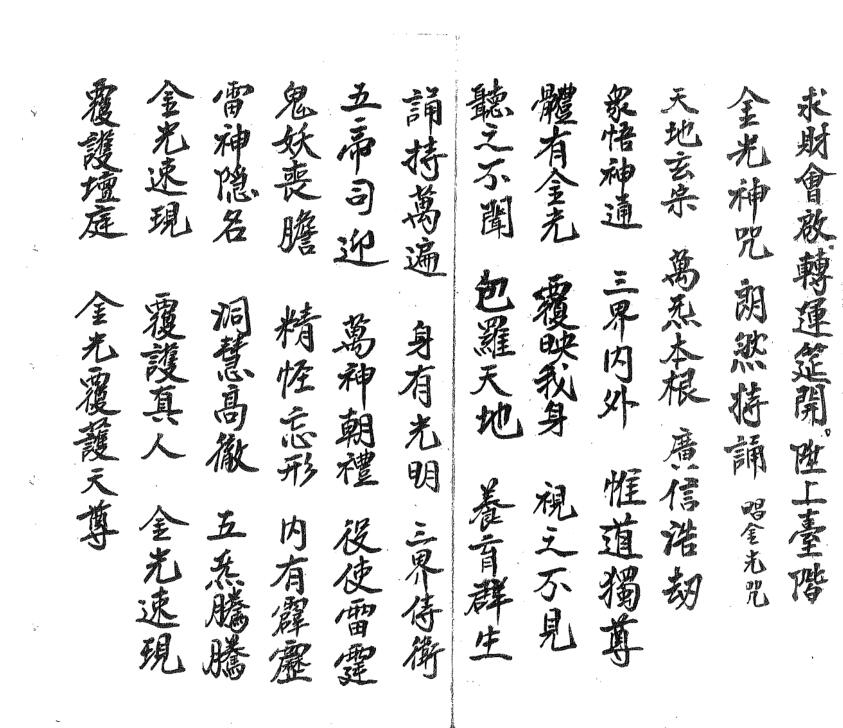 求財會啟。轉運筵開。陞上臺階
金光神咒 朗然持誦 唱金光咒
天地玄宗 萬炁本根 廣信浩劫
眾悟神通 三界内外 惟道獨尊
體有金光 覆映我身 視之不見
聽之不聞 包羅天地 養育群生
誦持萬遍 身有光明 三界侍衛
五帝司迎 萬神朝禮 役使雷霆
鬼妖喪膽 精怪忘形 内有霹靂
雷神隐名 洞慧高徹 五炁騰騰
金光速現 覆護真人 金光速現
覆護壇庭 金光覆護天尊